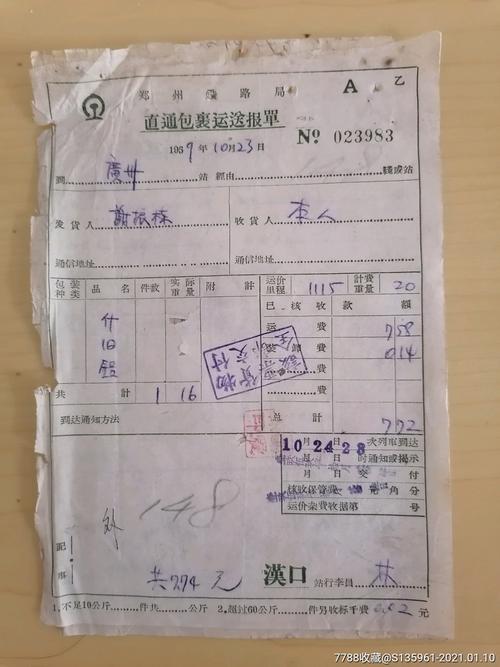 郑州铁路局 A 乙
直通包裹运送报單
1959年10月23日 № 023983
到 廣州 站 經由 綫或站
发货人 收货人 本人
通信地址 通信地址
包装种类 品名 件数 实际重量 附計 运价里程 1115 計費重量 20
已核收款額
运費 758
什 装卸費 014
旧 費
費
共計 1 16 总計 772
到达通知方法
10月24日23次列車到达
月日时通知或揭示
月日交付
核收保管費 元角分
运价杂費收据第 号
148
外
記事 共7.74元 漢口 站行李員 林
1.不足10公斤 件共 公斤 2.超过60公斤 件另收标千費 0.02 元
7788收藏@S135961-2021.01.10